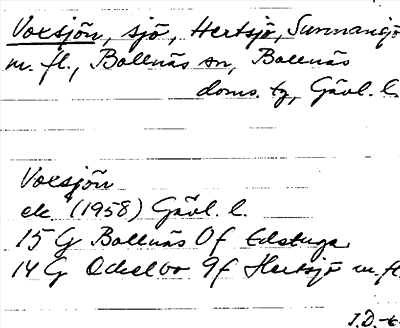 Voxsjön, sjö, Hertsjö, Sunnansjö
m. fl., Bollnäs sn, Bollnäs
doms. tg, Gävl. l.
Voxsjön
ek. (1958) Gävl. l.
15 G Bollnäs 0f Edstuga
14 G Ockelbo 9f Hertsjö m.fl.